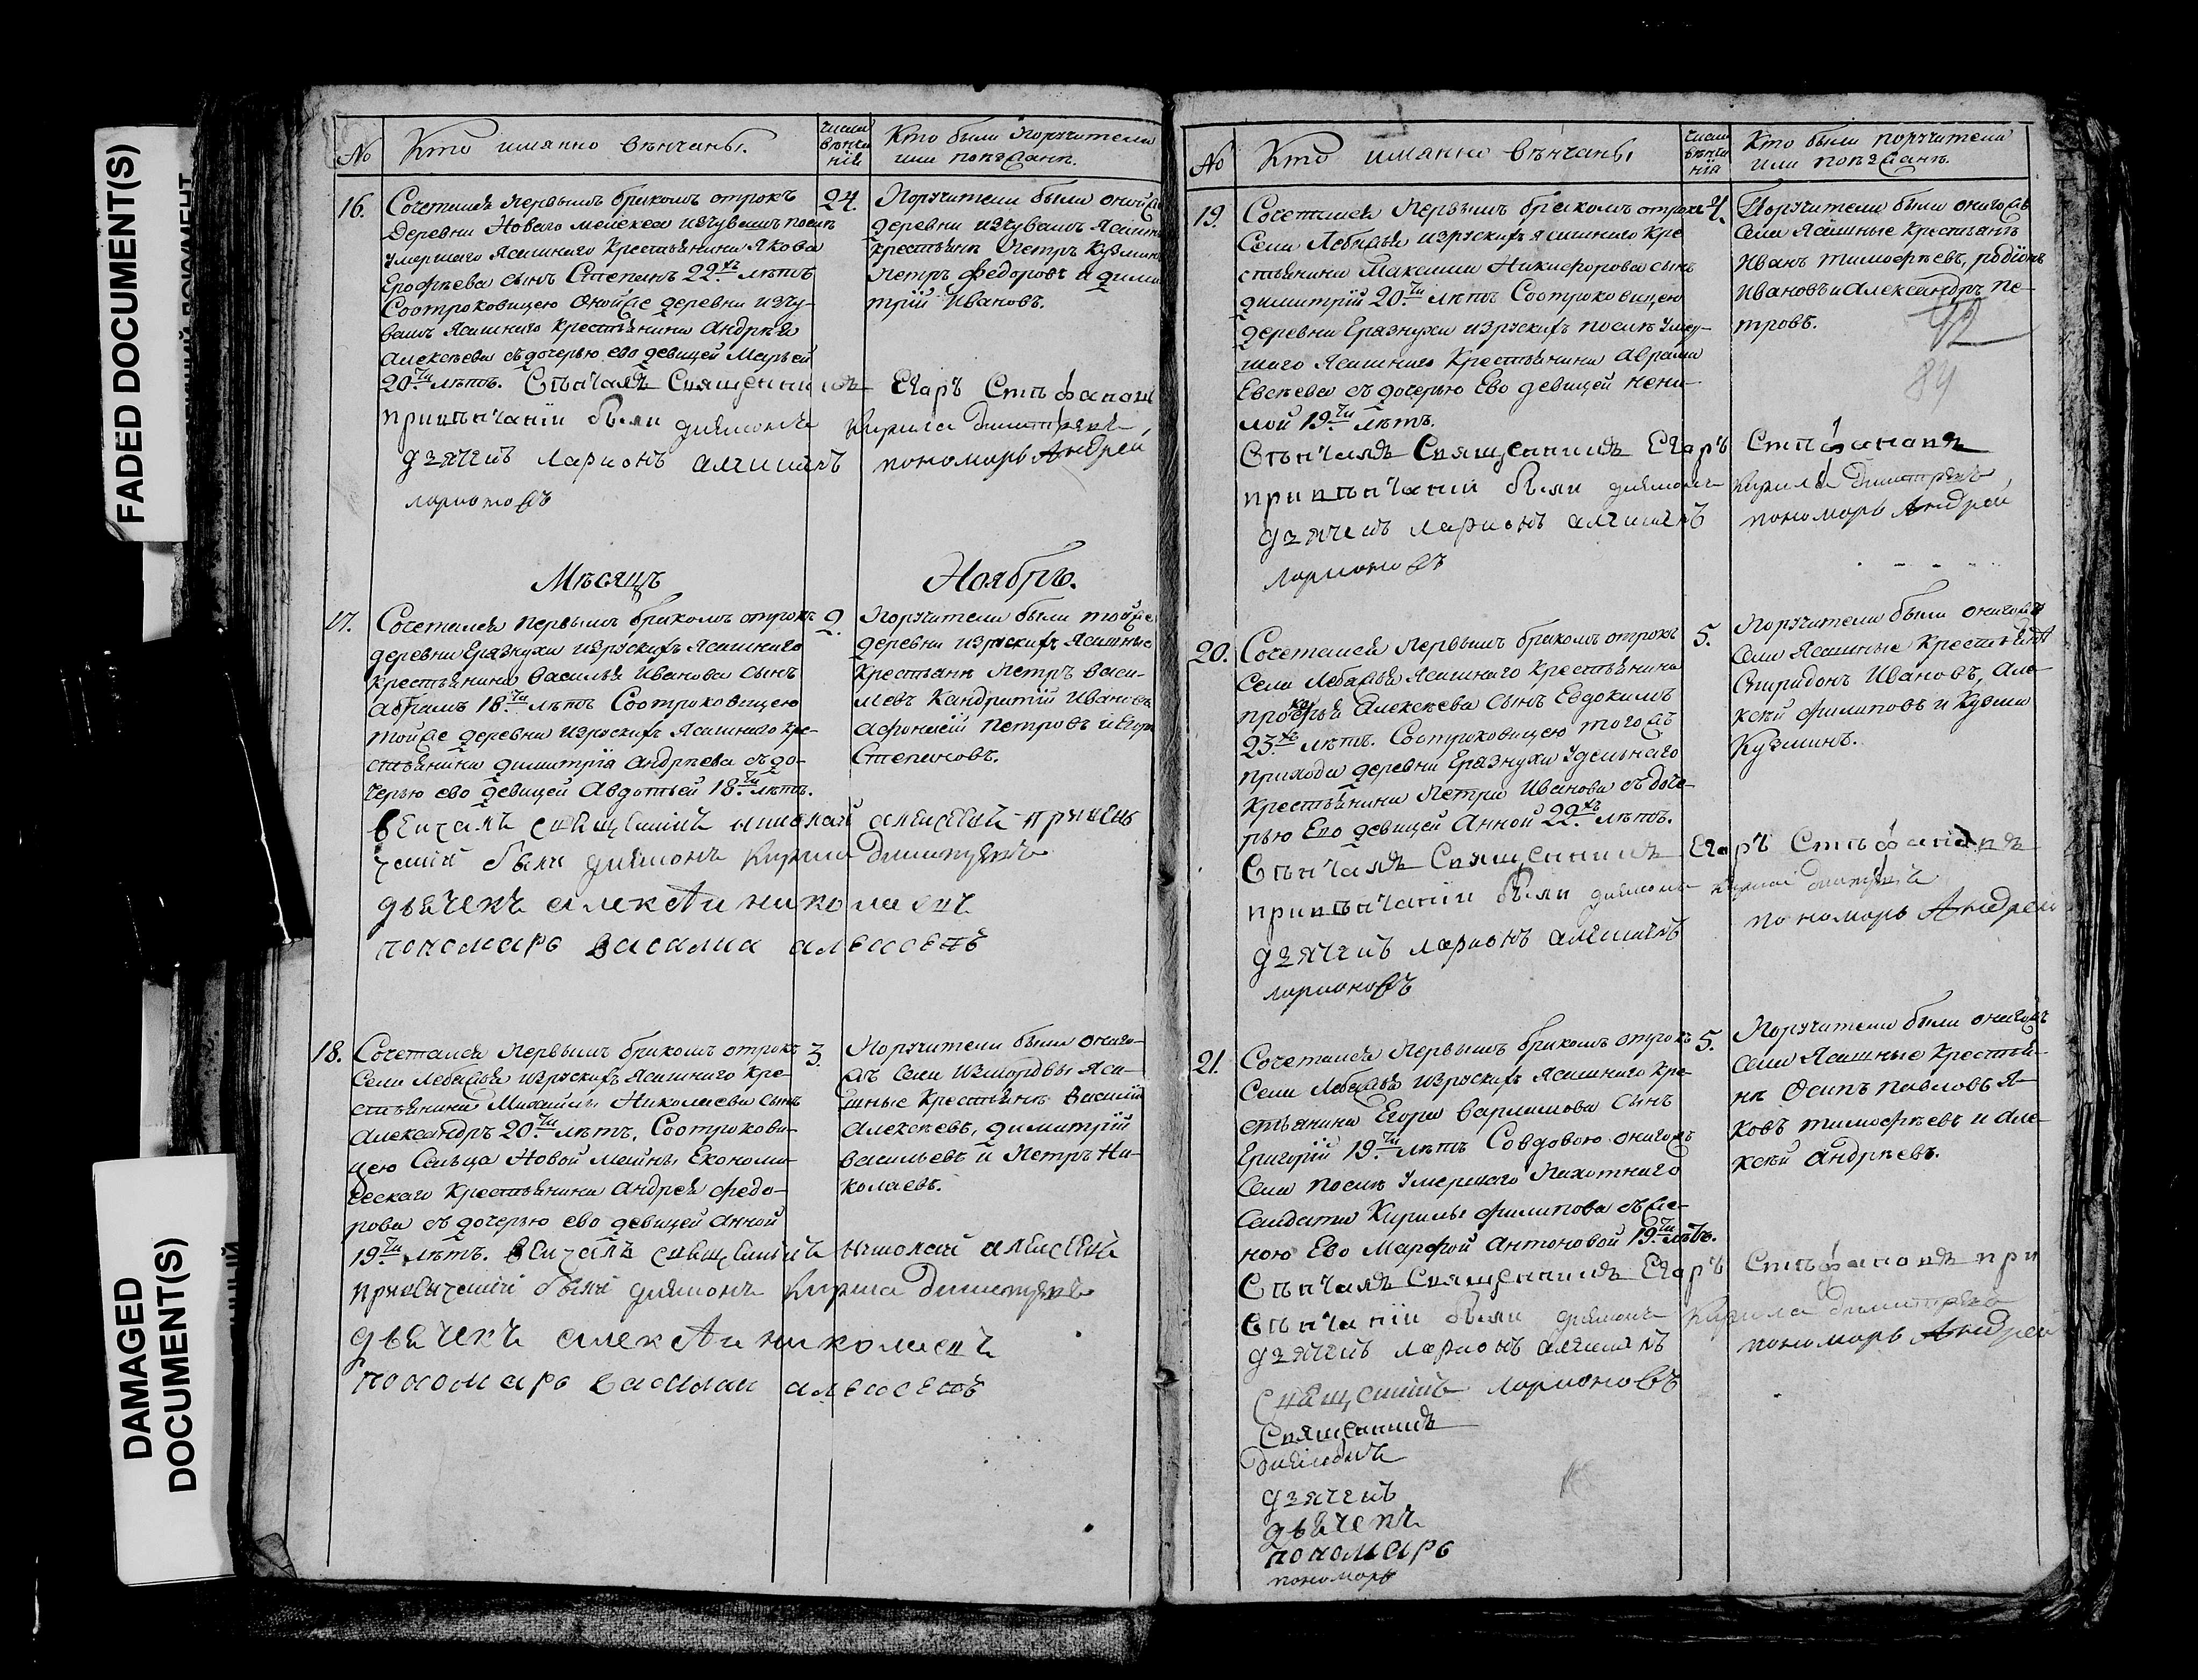 FADED DOCUMENT(S)
DAMAGED
DOCUMENT(S)
No
Кто имянно вѣнчаны.
числа
вѣнча
нія
Кто были поручители
или поѣзжанѣ.
16.
Сочетался первымъ бракомъ отрокъ
деревни Новаго мелекеса изчувашъ послѣ
умершаго Ясашнаго крестьянина Якова
Ерофѣева сынъ Степанъ 22.хъ лѣтъ
Соотроковицею оной же деревни изчу-
вашъ Ясашнаго крестьянина Андрѣя
Алексѣева съдочерью ево девицей Марьей
20.ти лѣтъ. Вѣнчалъ Священникъ Егаръ Стѣфановъ
привѣнчаніи были дияконъ Кирила Димитревъ
дячекъ ларионъ пономарь Андрей
ларионовъ
24.
Поручители были оной же
деревни изчувашъ Ясашны
крестьянѣ Петръ Кузминъ
Петръ Федоровъ и дими
трій Ивановъ.
Мѣсяцъ Ноябрь.
17.
Сочетался первымъ бракомъ отрокъ
деревни Ерязнухи изрускихъ Ясашнаго
крестьянина Василья Иванова сынъ
Абрамъ 18.ти лѣтъ Соотроковицею
той же деревни изрускихъ Ясашнаго кре-
стьянина димитрія Андрѣева съ до-
черью ево девицей Авдотьей 18.ти лѣтъ.
венчалъ священикъ николай алексеевъ привен
чаній были дияконъ Кирила Димитревъ
дьячекъ алексѣи николаевъ
пономарь василиа алексеевъ
2.
Поручители были той же
деревни изрускихъ Ясашные
крестьянѣ Петръ Васи-
льевъ Кандратій Ивановъ
Афонасій Петровъ и Егоръ
Степановъ.
18.
Сочетался первымъ бракомъ отрокъ
Села Лебяжья изрускихъ Ясашнаго кре-
стьянина Михайлы Николаева сынъ
Александръ 20.ти лѣтъ, Соотрокови-
цею Сельца Новой Майны Економи-
ческаго крестьянина Андрея Федо-
рова съ дочерью ево девицей Анной
19.ти лѣтъ. венчалъ священикъ николай алексеевъ
привенчаніи были дияконъ Кирила Димитревъ
дьячекъ алексѣи николаевъ
пономарь василии алексеевъ
3.
Поручители были онаго-
жъ Села измордвы Яса-
шные крестьянѣ Василій
Алексѣевъ, димитрій
Васильевъ и Петръ Ни-
колаевъ.
No
Кто имянно вѣнчаны
числа
вѣнча
нія
Кто были поручители
или поѣзжанѣ.
19.
Сочетался первымъ бракомъ отрокъ
Села Лебяжья изрускихъ Ясашнаго кре
стьянина Максима Никифорова сынъ
димитрій 20.ти лѣтъ Соотроковицею
деревни Ерязнухи изрускихъ послѣ умер-
шаго Ясашнаго крестьянина Аврама
Евсѣева съ дочерью Ево девицей нени-
лой 19.ти лѣтъ.
Вѣнчалъ Священникъ Егаръ Стѣфановъ
привѣнчаніи были дияконъ Кирила Димитревъ
дячекъ ларионъ пономарь Андрей
ларионовъ
4.
Поручители были онагожъ
Села Ясашные крестьянѣ
Иванъ Тимофѣевъ, родіонъ
Ивановъ и Александръ Пе-
тровъ.
84
20.
Сочетался первымъ бракомъ отрокъ
Села Лебяжья Ясашнаго крестьянина
прокофья Алексѣева сынъ Евдокимъ
23.хъ лѣтъ. Соотроковицею тогожъ
прихода деревни Ерязнухи Удельнаго
крестьянина Петра Иванова съ доче-
рью Ево девицей Анной 22.хъ лѣтъ.
Вѣнчалъ Священникъ Егаръ Стѣфановъ
привѣнчаніи были дияконъ Кирила Димитревъ
дячекъ ларионъ пономарь Андрей
ларионовъ
5.
Поручители были онагожъ
Села Ясашные крестьянѣ
Спиридонъ Ивановъ, Але-
ксѣй Филиповъ и Кузма
Кузминъ.
21.
Сочетался первымъ бракомъ отрокъ
Села Лебяжья изрускихъ Ясашнаго кре-
стьянина Егора Варламова сынъ
Григорій 19.ти лѣтъ Совдовою онагожъ
Села послѣ умершаго Пахотнаго
Салдата Кирилы Филипова съ же-
ною Ево Марфой Антоновой 19.ти лѣтъ.
Вѣнчалъ Священникъ Егаръ Стѣфановъ при
вѣнчаніи были дияконъ Кирила Димитревъ
дячекъ ларионъ пономарь Андрей
священикъ ларионовъ
Священникъ
дияконъ
дячекъ
дьячекъ
пономарь
пономарь
5.
Поручители были онагожъ
Села Ясашные крестья-
нѣ Осипъ Павловъ Я-
ковъ Тимофѣевъ и Але-
ксѣй Андрѣевъ.